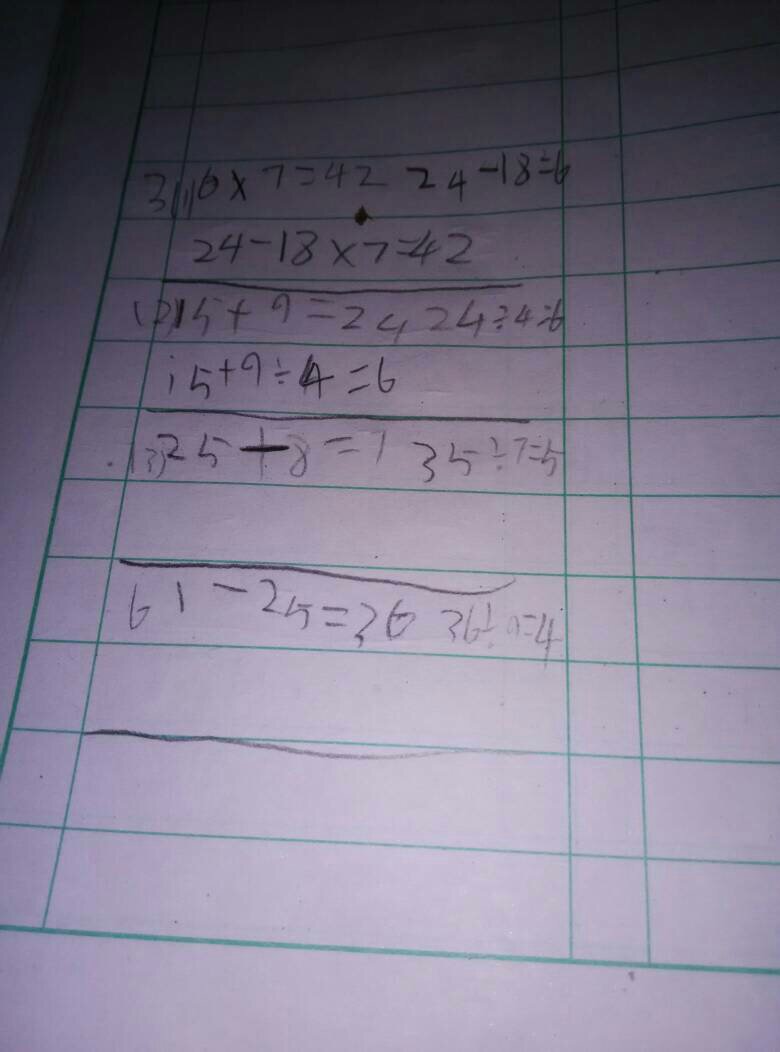 3(1)6×7=42 24-18=6
24-18×7=42
(2)15+9=24 24÷4=6
15+9÷4=6
(3)25+8=7 35÷7=5
61-25=36 36÷9=4